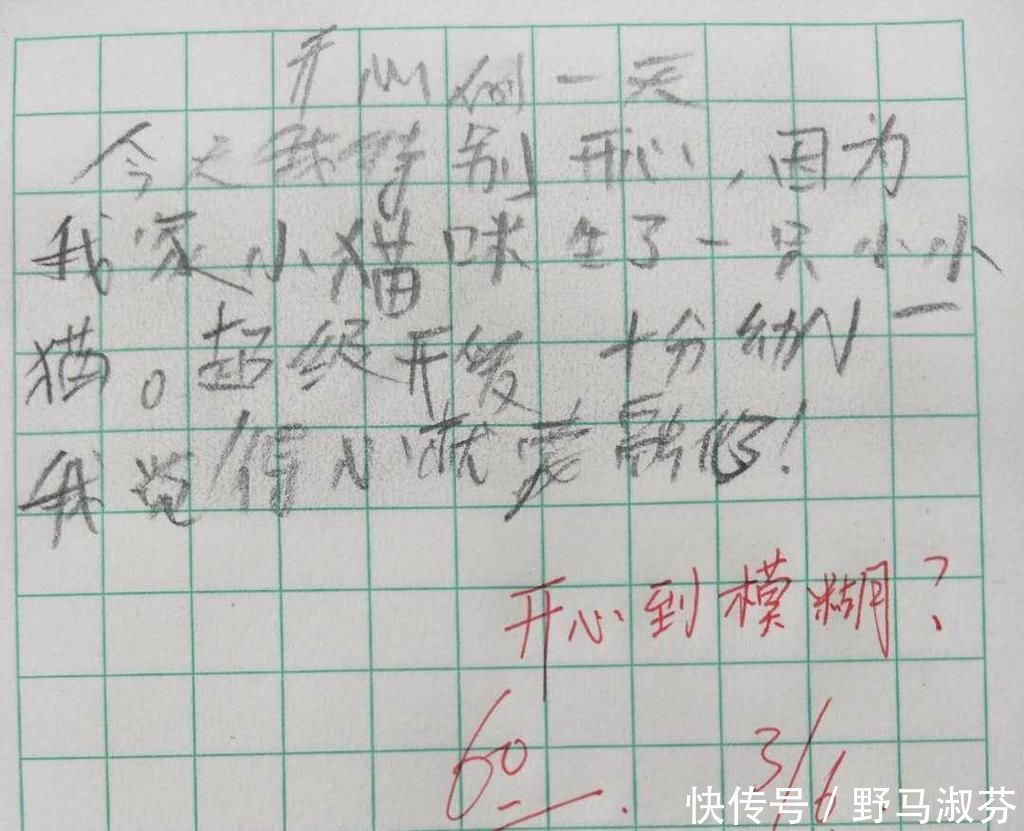 开心的一天
今天我特别开心,因为
我家小猫咪生了一只小小
猫。超级开爱 十分幼小一
我觉得心都要融化了!
开心到模糊?
60
3/6.
快传号/野马淑芬